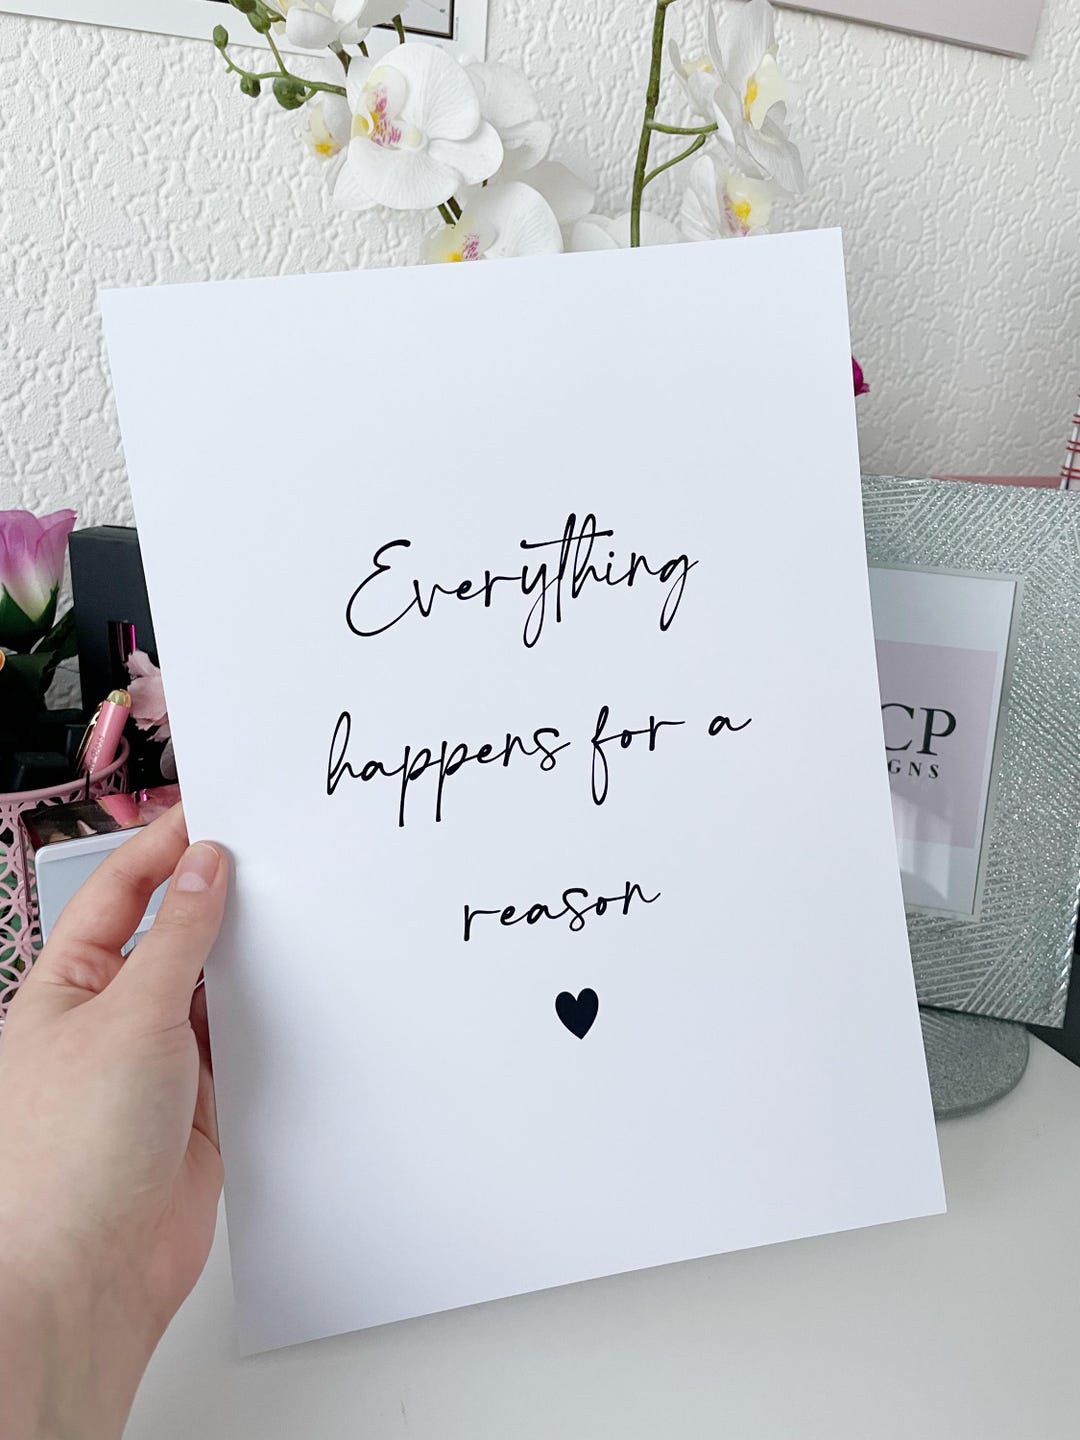 Everything
happens for a
reason
CP
GNS